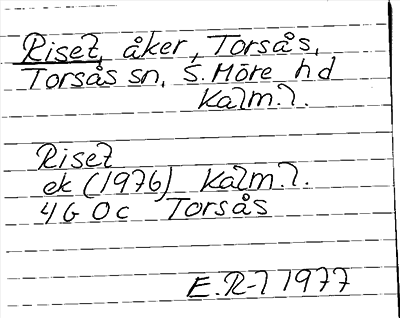 Riset, åker, Torsås,
Torsås sn, S. Möre hd
Kalm. l.
Riset
ek (1976) Kalm. l.
4G 0c Torsås
E. R-l 1977